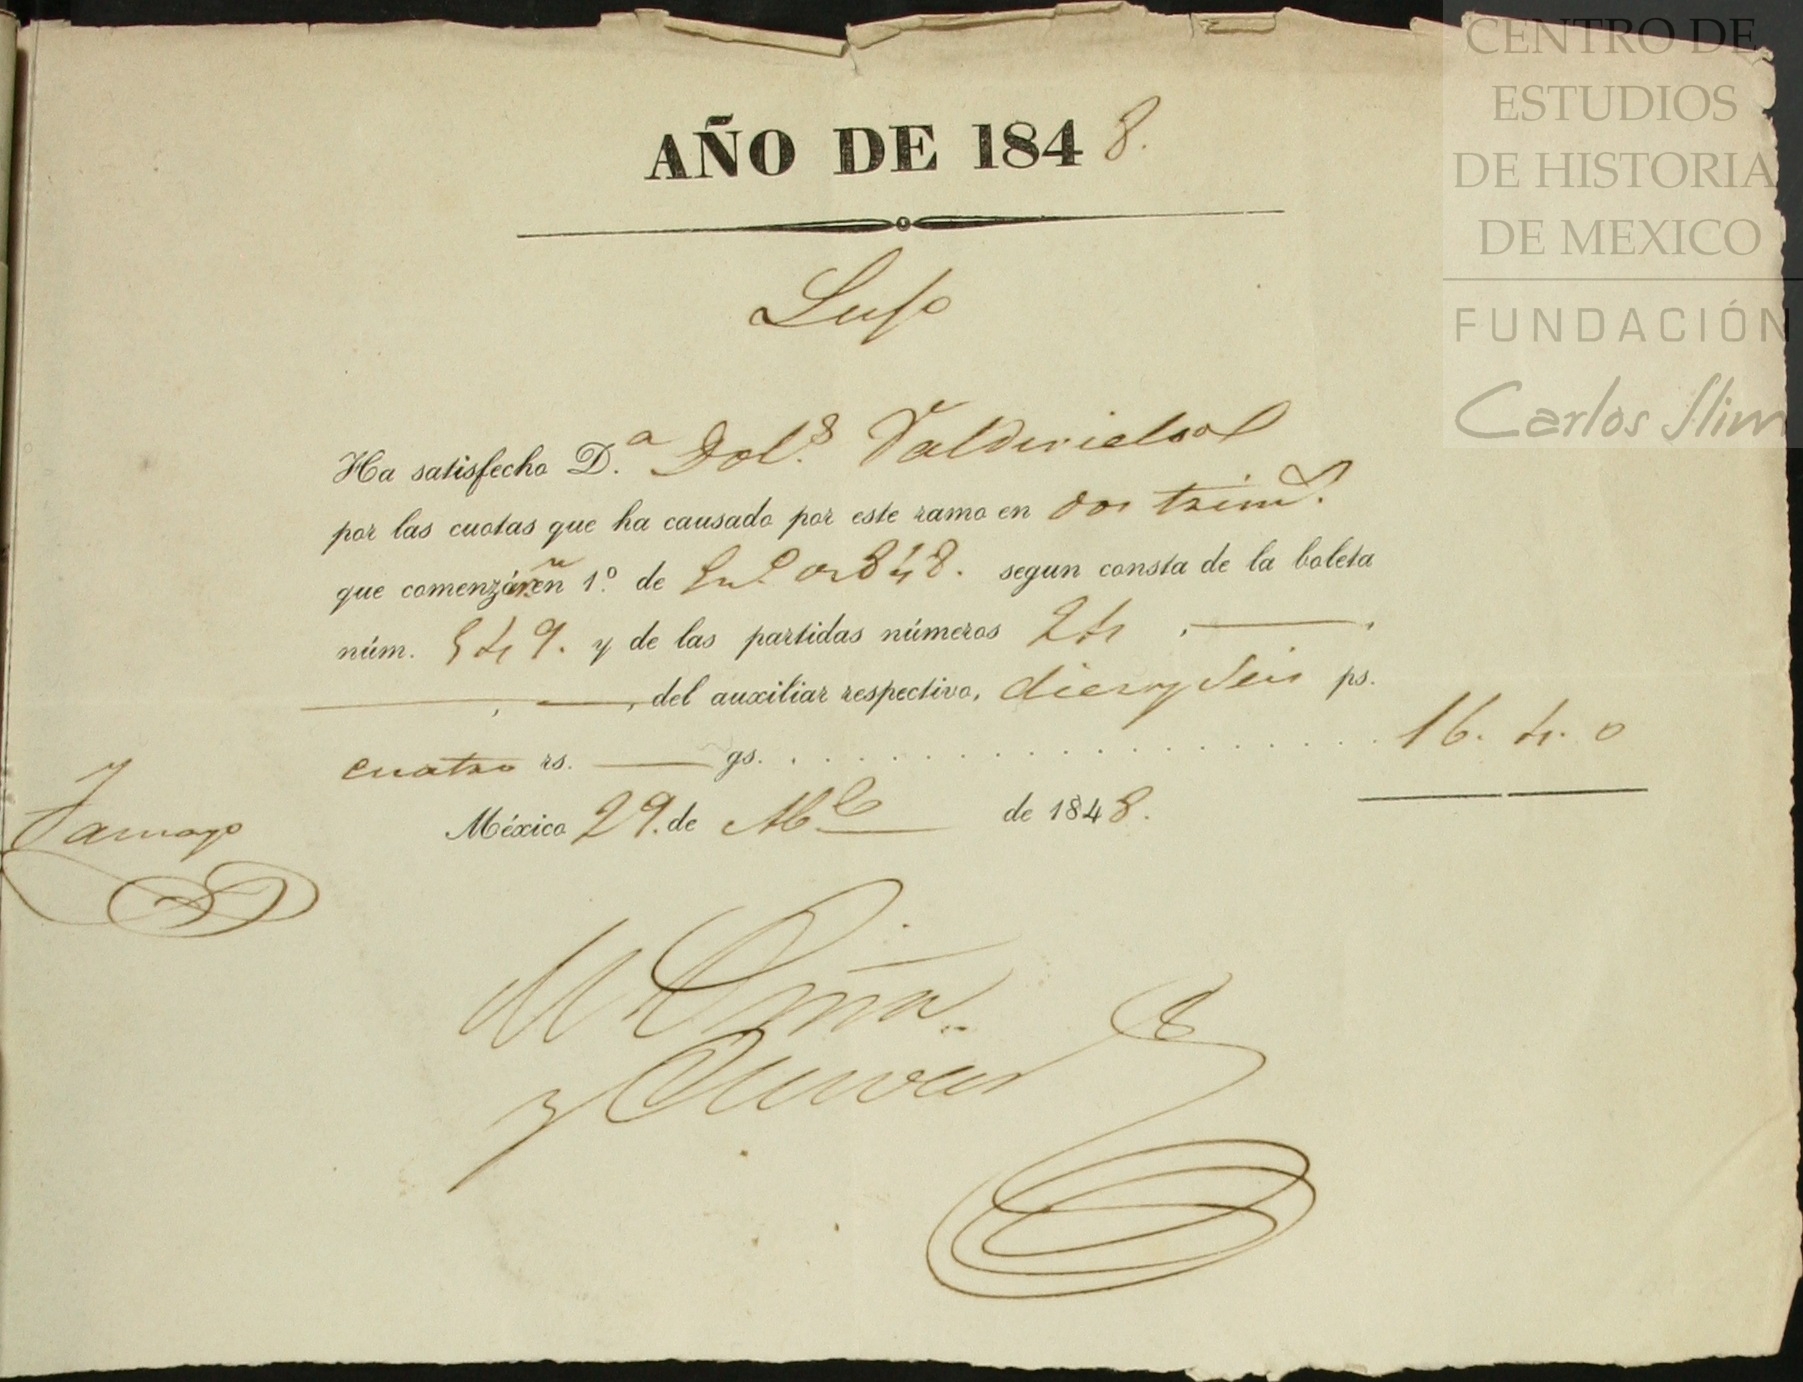 AÑO DE 1848.
Lujo
Ha satisfecho D.ª Dol.s Valdivielso
por las cuotas que ha causado por este ramo en dos trim.s
que comenzáron en 1.º de En.o de 848. segun consta de la boleta
núm. 549. y de las partidas números 24 , ——— ,
——— , ——— , del auxiliar respectivo, diez y seis ps.
cuatro rs. ——— gs. . . . . . . . . . . . . . . . . . . . 16. 4. 0
México 29. de de 1848.
Tamayo
M Piña
y Cuevas
CENTRO DE
ESTUDIOS
DE HISTORIA
DE MEXICO
FUNDACIÓN
Carlos Slim